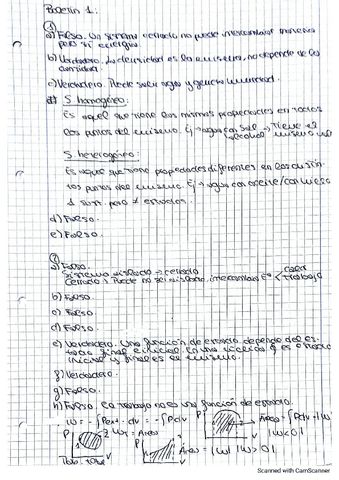 Boletín 1:
①
a) Falso. Un sistema cerrado no puede intercambiar materia
pero sí energía
b) Verdadero. La densidad es la misma, no depende de la
cantidad.
c) Verdadero. Puede salir agua y generar humedad.
S homogéneo:
Es aquel que tiene las mismas propiedades en todos
los puntos del mismo. Ej → agua con sal → Tiene el
alcohol mismo
S heterogéneo:
Es aquel que tiene propiedades diferentes en los distin-
tos puntos del mismo. Ej → agua con aceite/con hielo
↓ sust. pero ≠ estados.
d) Falso.
e) Falso.
②
a) Falso.
Sistema aislado → cerrado
Cerrado → Puede no ser aislado, intercambia Eª < calor
trabajo
b) Falso.
c) Falso.
d) Falso.
e) Verdadero. Una función de estado depende del es-
tado final e inicial. En un ciclo el estado
inicial y final es el mismo.
f) Verdadero.
g) Falso.
h) Falso. El trabajo no es una función de estado.
W = -∫Pext · dv = -∫Pdv
Área = ∫Pdv
P 2 W = Área
P
P
|W| < 0
1 V
V Área = |W| |W| > 0
V
Scanned with CamScanner